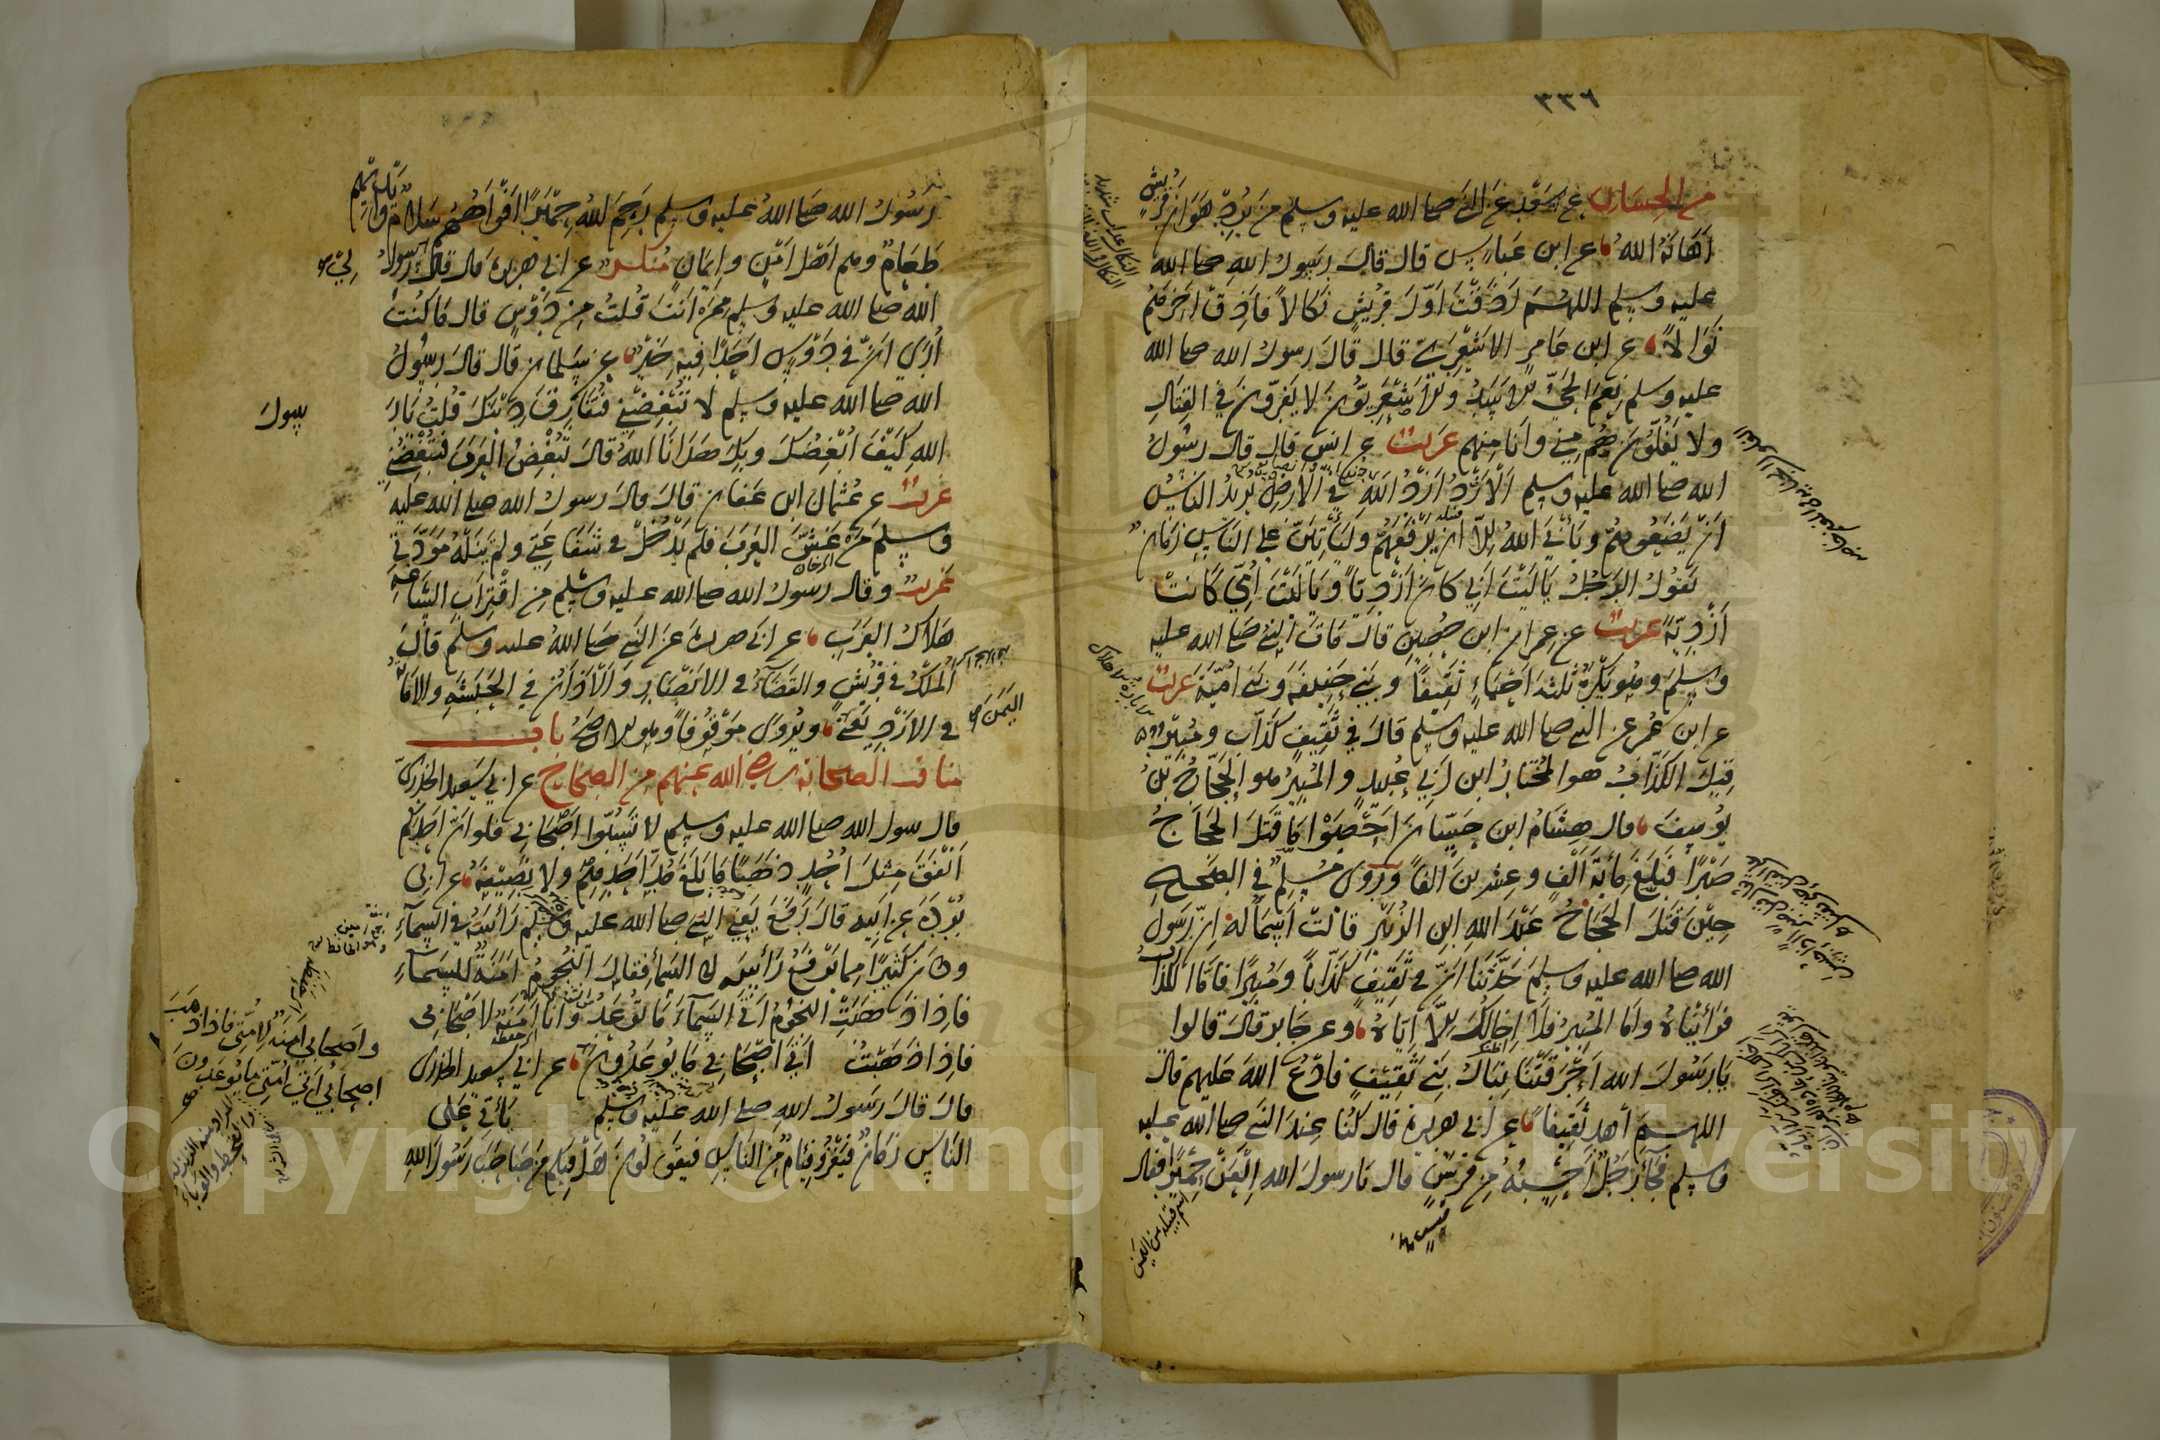 ٣٣٦
من الحسان عن سعد عن النبي صلى الله عليه وسلم من يرد هوان قريش
اهانه الله عن ابن عباس قال قال رسول الله صلى الله
عليه وسلم اللهم اذقت اول قريش نكالا فاذق اخرهم
نوالا عن ابن عامر الاشعري قال قال رسول الله صلى الله
عليه وسلم نعم الحي الاسد والاشعريون لا يفرون في القتال
ولا يغلون هم مني وانا منهم غريب عن انس قال قال رسول
الله صلى الله عليه وسلم الازد ازد الله في الارض يريد الناس
ان يضعوهم ويأبى الله الا ان يرفعهم وليأتين على الناس زمان
يقول الرجل يا ليت ابي كان ازديا ويا ليت امي كانت
ازدية غريب عن عمران ابن حصين قال مات النبي صلى الله عليه
وسلم وهو يكره ثلثة احياء ثقيفا وبني حنيفة وبني امية غريب
عن ابن عمر عن النبي صلى الله عليه وسلم قال في ثقيف كذاب ومبير
قيل الكذاب هو المختار ابن ابي عبيد والمبير هو الحجاج بن
يوسف وقال هشام ابن حسان احصوا ما قتل الحجاج
صبرا فبلغ مائة الف وعشرين الفا وروى مسلم في الصحيح
حين قتل الحجاج عبد الله ابن الزبير قالت اسماء له ان رسول
الله صلى الله عليه وسلم حدثنا ان في ثقيف كذابا ومبيرا فاما الكذاب
فرأيناه واما المبير فلا اخالك الا اياه وعن جابر قال قالوا
يا رسول الله احرقتنا نبال بني ثقيف فادع الله عليهم قال
اللهم اهد ثقيفا عن ابي هريرة قال كنا عند النبي صلى الله عليه
وسلم فجاء رجل احسبه من قريش قال يا رسول الله العن حميرا فقال
قيس
اسم قبيلة من اليمن
رسول الله صلى الله عليه وسلم يرحم الله حميرا افواههم سلام وايديهم
طعام وهم اهل امن وايمان منكر عن ابي هريرة قال قال رسول
لي
الله صلى الله عليه وسلم ممن انت قلت من دوس قال ما كنت
ارى ان في دوس احدا فيه خير عن سلمان قال قال رسول
الله صلى الله عليه وسلم لا تبغضني فتفارق دينك قلت يا رسول
الله كيف ابغضك وبك هدانا الله قال تبغض العرب فتبغضني
غريب عن عثمان ابن عفان قال قال رسول الله صلى الله عليه
وسلم من غش العرب لم يدخل في شفاعتي ولم ينله مودتي
غريب وقال رسول الله صلى الله عليه وسلم من اقتراب الساعة
هلاك العرب عن ابي هريرة عن النبي صلى الله عليه وسلم قال
الملك في قريش والقضاء في الانصار والاذان في الحبشة والامانة
في الازد يعني اليمن ويروى موقوفا وهو الاصح باب
مناقب الصحابة رضي الله عنهم من الصحاح عن ابي سعيد الخدري
قال رسول الله صلى الله عليه وسلم لا تسبوا اصحابي فلو ان احدكم
انفق مثل احد ذهبا ما بلغ مد احدهم ولا نصيفه عن ابي
بردة عن ابيه قال رفع يعني النبي صلى الله عليه وسلم رأسه الى السماء
وكان كثيرا مما يرفع رأسه الى السماء فقال النجوم امنة للسماء
فاذا ذهبت النجوم اتى السماء ما توعد وانا امنة لاصحابي
فاذا ذهبت اتى اصحابي ما يوعدون عن ابي سعيد الخدري
واصحابي امنة لامتي فاذا ذهب
اصحابي اتى امتي ما يوعدون
قال قال رسول الله صلى الله عليه وسلم يأتي على
الناس زمان فيغزو فئام من الناس فيقولون هل فيكم من صاحب رسول الله
Copyright © King University